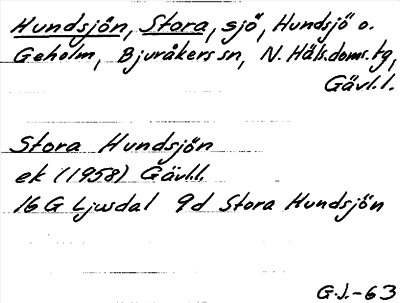 Hundsjön, Stora, sjö, Hundsjö o.
Geholm, Bjuråkers sn, N. Häls.doms.tg,
Gävl.l.
Stora Hundsjön
ek (1958) Gävl.l.
16 G Ljusdal 9d Stora Hundsjön
G.J.-63